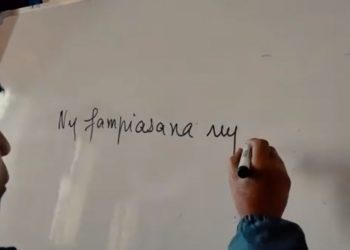 Ny fampiasana ny